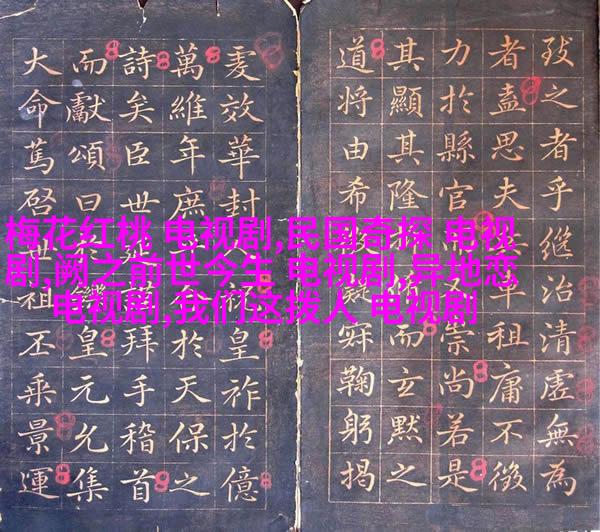 梅花红桃 电视剧,民国奇探 电视
剧,阙之前世今生 电视剧,异地恋
电视剧,我们这拨人 电视剧
之者乎繼治清虛無為
者盍思夫草祖庸不徵
力於縣官崇尚若是
其顯其隆而玄默之
道將由希寂鞠躬揭
效華封人祝皇祚於億
萬維年庶於天保之
詩矣臣世拜手稽首
而獻頌曰於鑠皇元允集
大命篤啓世祖丕乘景運